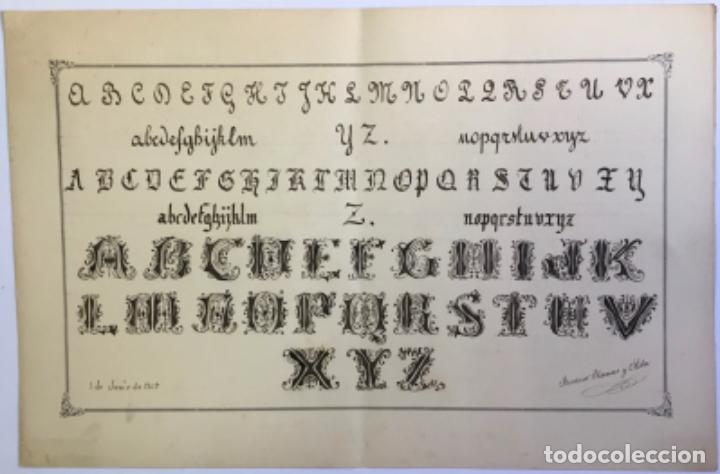 A B C D E F G H I J K L M N O P Q R S T U V X
abcdefghijklm Y Z. nopqrstuvxyz
A B C D E F G H I J K L M N O P Q R S T U V X Y
abcdefghijklm Z. nopqrstuvxyz
A B C D E F G H I J K
L M N Ñ O P Q R S T U V
X Y Z
1 de de
y
todocoleccion